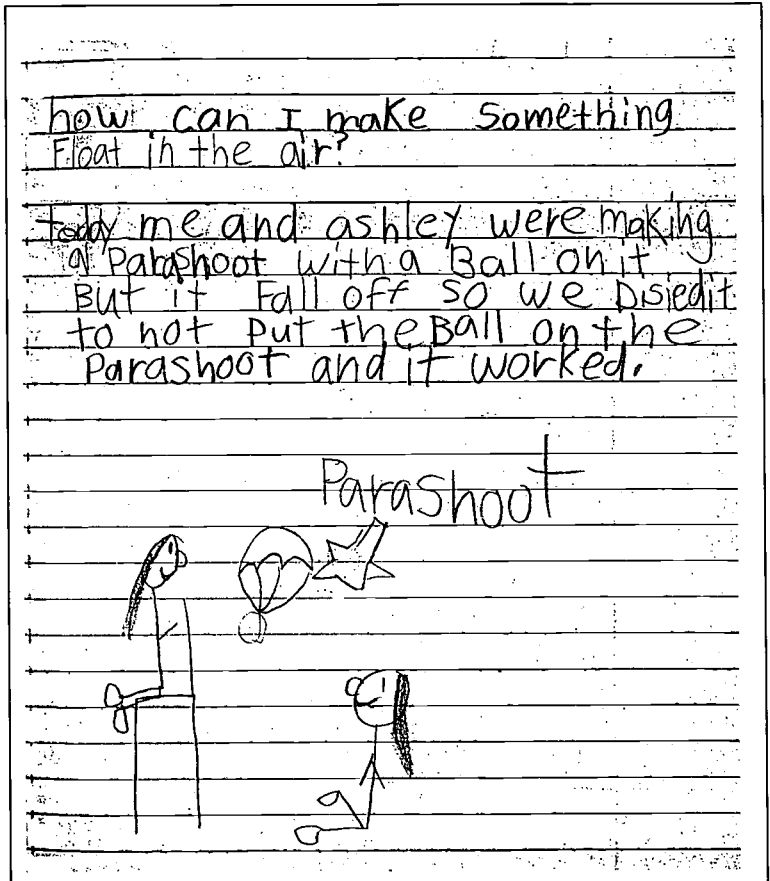 how can I make something
Float in the air?
today me and ashley were making
a Parashoot with a Ball on it
But it Fall off so we Disiedit
to not put the Ball on the
Parashoot and it worked.
Parashoot